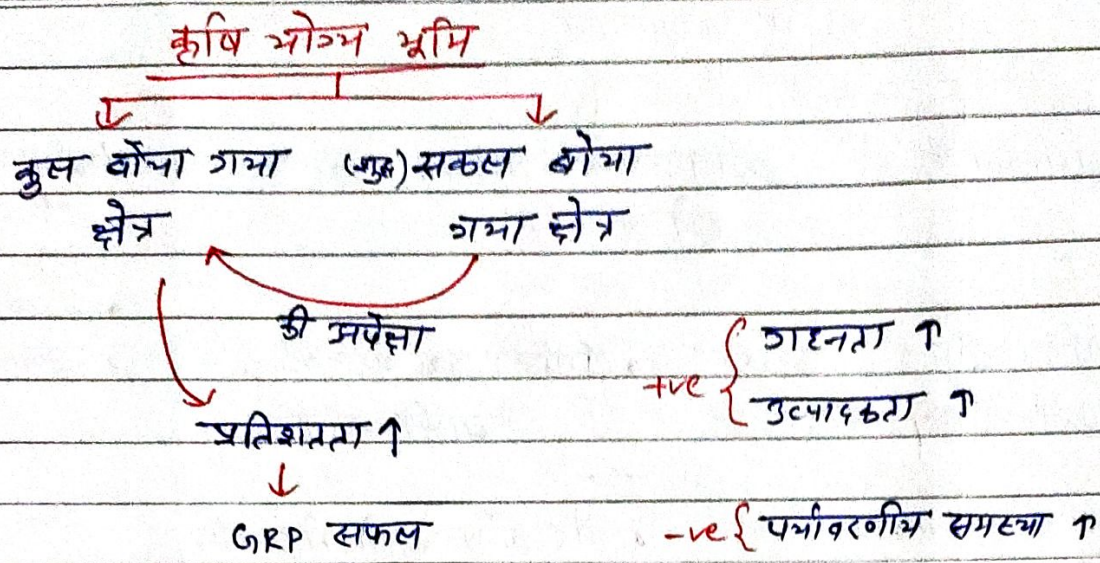 कृषि योग्य भूमि
कुल बोया गया क्षेत्र
(शुद्ध) सकल बोया गया क्षेत्र
की अपेक्षा
प्रतिशतता ↑
↓
GRP सफल
+ve { गहनता ↑
उत्पादकता ↑
-ve { पर्यावरणीय समस्या ↑